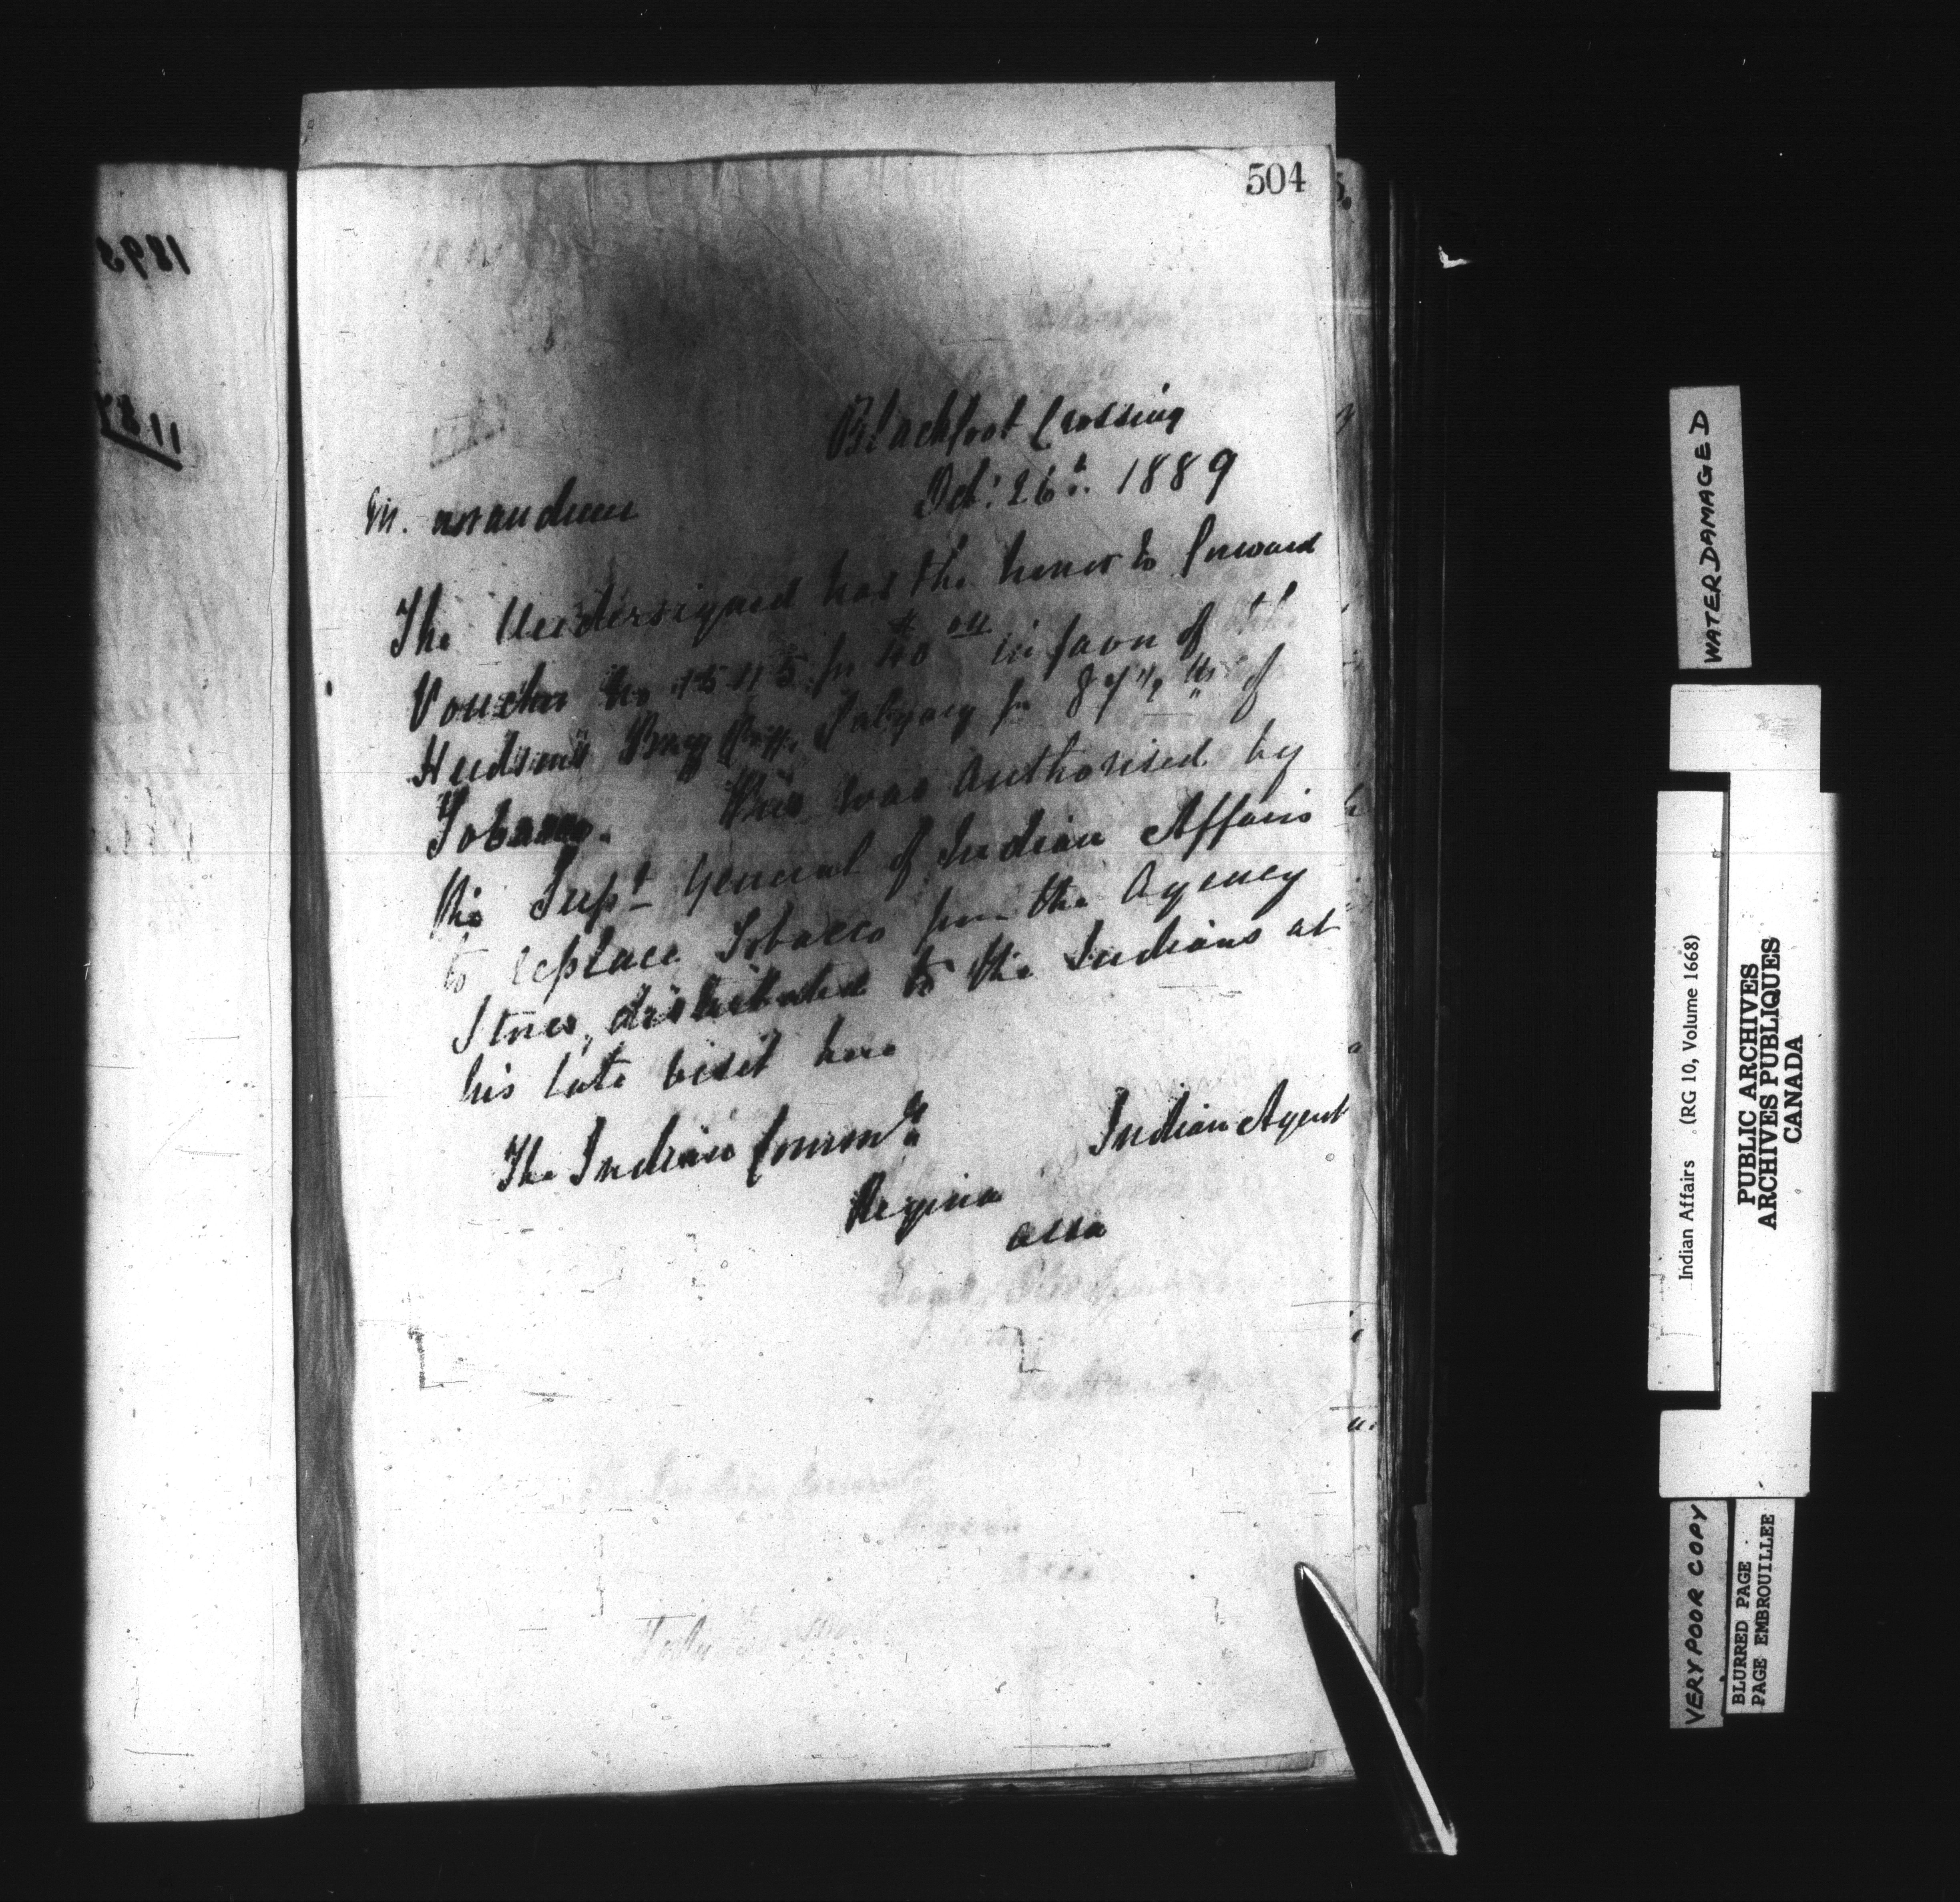 504
Blackfoot Crossing
Oct. 26th. 1889
M. morandum
The Undersigned has the honor to forward
Voucher No for 40 00 in favor of the
Hudson's Bay Calgary for 87 1/2 lbs of
Tobacco. This was authorised by
the Supt General of Indian Affairs
to replace Tobacco from the Agency
Stores, distributed to the Indians at
his late visit here
Indian Agent
The Indian Commr
Regina
Assa
1893
1187
WATER DAMAGED
Indian Affairs (RG 10, Volume 1668)
PUBLIC ARCHIVES
ARCHIVES PUBLIQUES
CANADA
VERY POOR COPY
BLURRED PAGE
PAGE EMBROUILLEE